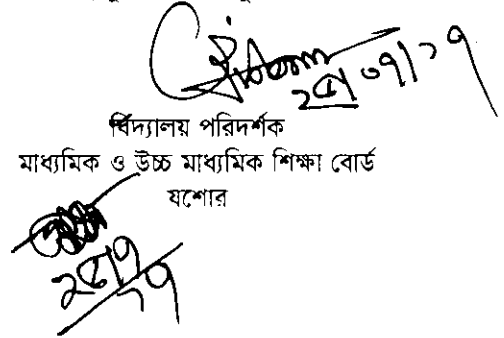 ২৫/০৭/১৭
বিদ্যালয় পরিদর্শক
মাধ্যমিক ও উচ্চ মাধ্যমিক শিক্ষা বোর্ড
যশোর
২৫/৭/১৭